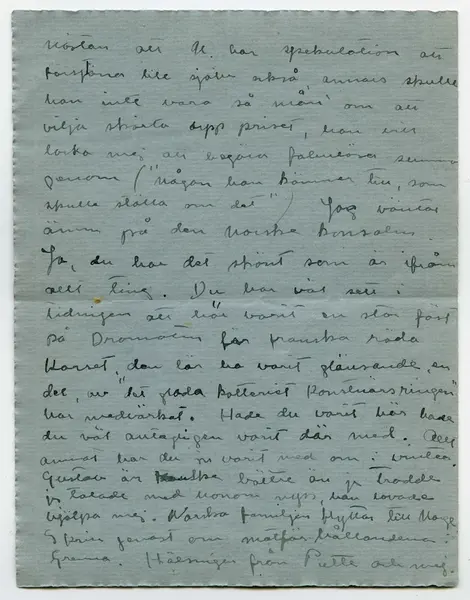 nästan att N. har spekulation att
förtjäna lite själv också, annars skulle
han inte vara så mån om att
vilja skörta upp priset, han vill
locka mej att begära fabulösa summor
genom ("Någon han känner till, som
skulle slåss om det") Jag väntar
ännu på den norske konsuln.
Ja, du har det skönt som är ifrån
allt ting. Du har väl sett i
tidningen att här varit en stor fest
på Dramaten för franska röda
Korset, den lär ha varit glänsande, en
del av "de glada
har medverkat. Hade du varit här hade
du väl antagligen varit där med. Allt
annat har du ju varit med om i vinter.
Gustav är bättre än jag trodde
jag talade med honom nyss, han lovade
hjälpa mej. familjen flyttar till
genast om
Grenna. Hälsningar från Putte och mej.